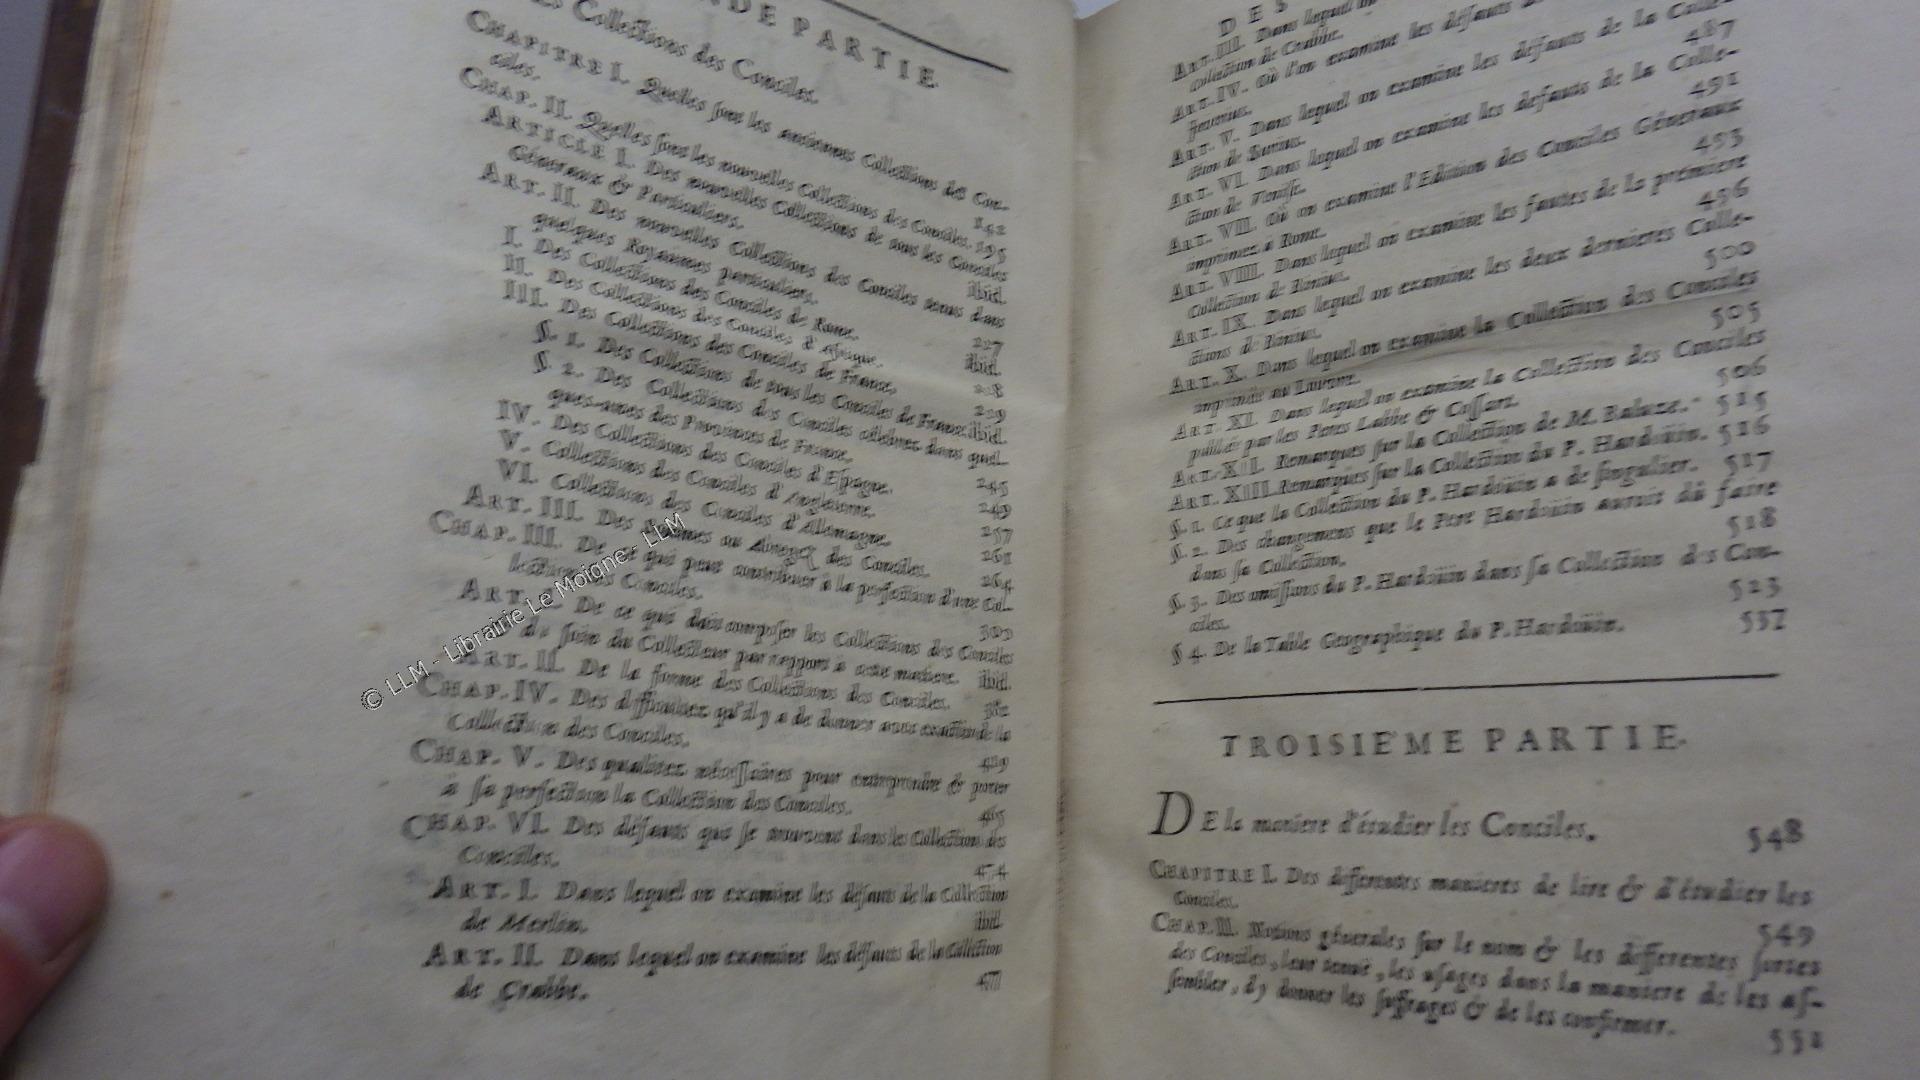 NDE PARTIE
Collections des Conciles.
CHAPITRE I. Quelles sont les anciennes Collections des Con-
ciles. 142
CHAP. II. Quelles sont les nouvelles Collections des Conciles. 195
ARTICLE I. Des nouvelles Collections de tous les Conciles
Généraux & Particuliers. ibid.
ART. II. Des nouvelles Collections des Conciles tenus dans
quelques Royaumes particuliers. 227
I. Des Collections des Conciles de Rome. ibid.
II. Des Collections des Conciles d'Afrique.
III. Des Collections des Conciles de France.
§. 1. Des Collections de tous les Conciles de France. ibid.
§. 2. Des Collections des Conciles célébrez dans quel-
ques-unes des Provinces de France. 245
IV. Des Collections des Conciles d'Espagne. 249
V. Collections des Conciles d'Angleterre. 257
VI. Collections des Conciles d'Allemagne. 261
ART. III. Des Sommes ou Abregez des Conciles. 264
CHAP. III. De ce qui peut contribuer à la perfection d'une Col-
lection des Conciles.
ART. I. De ce qui doit composer les Collections des Conciles
du soin du Collecteur par rapport à cette matiere. ibid.
ART. II. De la forme des Collections des Conciles.
CHAP. IV. Des difficultez qu'il y a de donner une exacte de la
Collection des Conciles.
CHAP. V. Des qualitez nécessaires pour entreprendre & porter
à sa perfection la Collection des Conciles. 465
CHAP. VI. Des défauts qui se trouvent dans les Collections des
Conciles. 474
ART. I. Dans lequel on examine les défauts de la Collection
de Merlin. ibid.
ART. II. Dans lequel on examine les défauts de la Collection
de Crabbe. 477
© LLM - Librairie Le Moigne - LLM
DES
ART. III. Dans lequel
Collection de Crabbe.
ART. IV. Où l'on examine les défauts
487
ART. V. Dans lequel on examine les défauts de la Colle-
ction de Surius. 491
ART. VI. Dans lequel on examine les défauts de la Colle-
ction de Venise. 493
ART. VII. Où on examine l'Edition des Conciles Géneraux
imprimez à Rome. 496
ART. VIII. Dans lequel on examine les fautes de la premiere
Collection de Binius. 500
ART. IX. Dans lequel on examine les deux dernieres Colle-
ctions de Binius.
ART. X. Dans lequel on examine la Collection des Conciles
imprimée au Louvre. 505
ART. XI. Dans lequel on examine la Collection des Conciles
publiée par les Peres Labbe & Cossart. 506
ART. XII. Remarques sur la Collection de M. Baluze. 515
ART. XIII. Remarques sur la Collection du P. Hardoüin. 516
§. 1. Ce que la Collection du P. Hardoüin a de singulier. 517
§. 2. Des changemens que le Pere Hardoüin auroit dû faire
dans sa Collection. 518
§. 3. Des omissions du P. Hardoüin dans sa Collection des Con-
ciles. 523
§ 4. De la Table Geographique du P. Hardoüin. 537
TROISIEME PARTIE.
DE la maniere d'étudier les Conciles. 548
CHAPITRE I. Des differentes manieres de lire & d'étudier les
Conciles. 549
CHAP. II. Notions génerales sur le nom & les differentes sortes
des Conciles, leur tenuë, les usages dans la maniere de les as-
sembler, d'y donner les suffrages & de les confirmer. 552